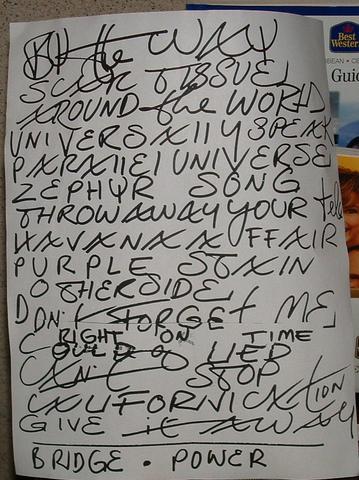 BY the WAY
SCAR TISSUE
AROUND the WORLD
UNIVERSAllY SPEAK
PARAllEl UNIVERSE
ZEPHYR SONG
THROW AWAY YOUR tele
HAVANA AFFAIR
PURPLE STAIN
OTHERSIDE
DON'T FORGET ME
RIGHT ON TIME
COULD LIED
CAN'T STOP
CALIFORNICATION
GIVE it AWAY
BRIDGE . POWER
Best Wester
BEAN
Guid